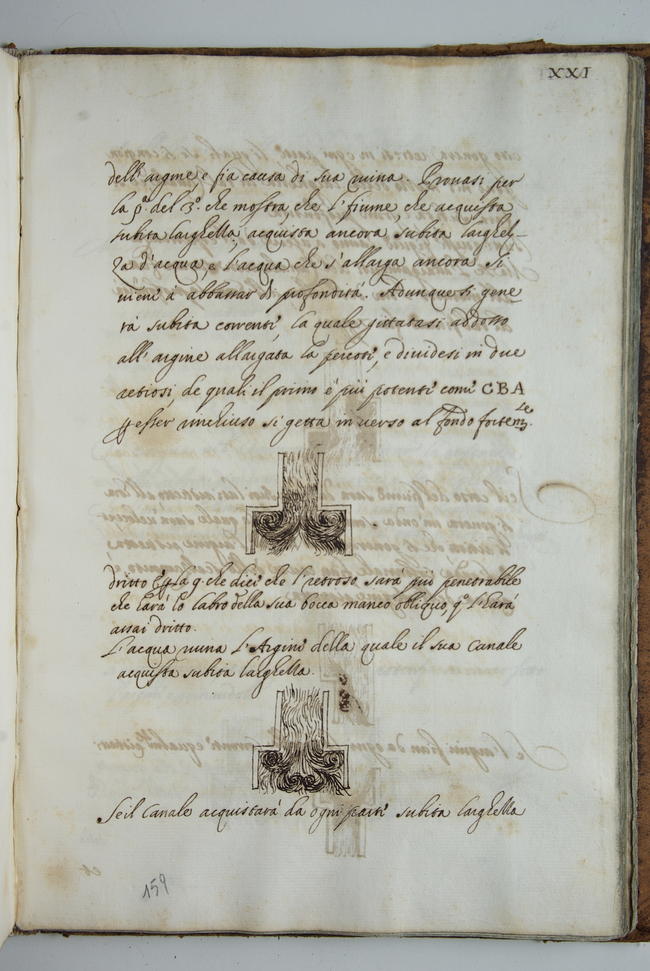 XXI
dell' argine e sia causa di sua ruina. Prouasi per
la p.ª del 3.º che mostra che l' fiume, che acquista
subita larghezza, acquista ancora subita larghez-
za d'acqua, e l'acqua che s'allarga ancora si
uiene à abbassar di profondità. Adunque si gene
rà subita corrente, la quale gittatasi addosso
all' argine allargata la percote, e diuidesi in due
retrosi, de quali il primo è più potente come CBA
esser rinchiuso si getta in uerso al fondo forte.
dritto la 9. che dice che l' retroso sarà più penetrabile
che harà lo labro della sua bocca manco obliquo, l' harà
assai dritto.
L'acqua ruina l'Argine della quale il sua Canale
acquista subita larghezza.
Se il Canale acquistarà da ogni parte subita larghezza
159